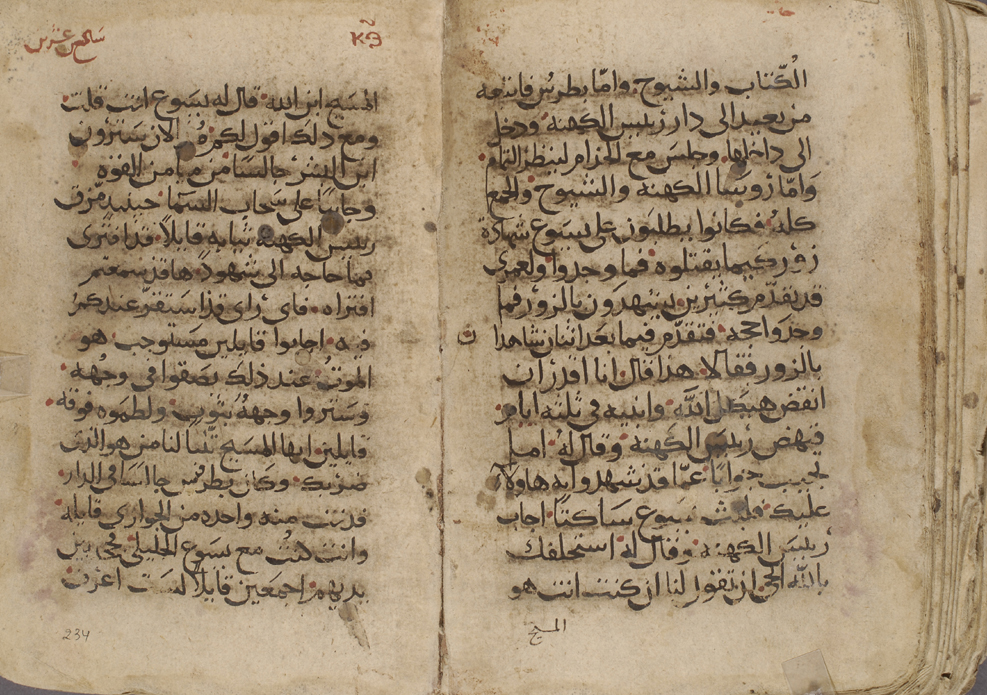 الكتاب والشيوخ وامّا بطرس فانه تبعه
من بعيد الى دار رئيس الكهنه ودخل
الى داخلها وجلس مع الخزام لينظر التمام
وامّا روسا الكهنه والشيوخ والجمع
كله فكانوا يطلبون على يسوع شهادة
زور كيما يقتلوه فما وجدوا ولعمرى
قد تقدّم كثيرين يشهدون بالزور فما
وجدوا حجه فتقدّم فيما بعد اثنان شاهدا
بالزور فقالا هذا قال انا اقدر ان
انقض هيكل الله وابنيه في ثلثه ايام
فنهض رييس الكهنه وقال له اما
تجيب جوابًا عمّا قد شهدوا به هاولاء
عليك فلبث يسوع ساكتًا اجاب
رييس الكهنه وقال له استحلفك
بالله الحي ان تقول لنا ان كنت انت هو
المسيح
سابع عشرين
ⲕⲍ
المسيح ابن الله قال له يسوع انت قلت
ومع ذلك اقول لكم من الان سترون
ابن البشر جالسًا من ميامن القوه
وجاييًا على سحاب السما حينيد مزّق
رييس الكهنه ثيابه قايلاً قد افترى
بما حاجه الى شهود ها قد سمعتم
افتراه فاى راى قد استقرّ عندكم
فيه اجابوا قايلين مستوجب هو
الموت عند ذلك بصقوا في وجهه
وستروا وجههُ بثوب ولطموه فوقه
قايلين ايها المسيح تنبّا لنا من هو الذى
ضربك وكان بطرس جالسًا في الدار
فدنت منه واحده من الجوارى قايله
وانت كنت مع يسوع الجليلى فجحد بين
يديهم اجمعين قايلاً لست اعرف
234